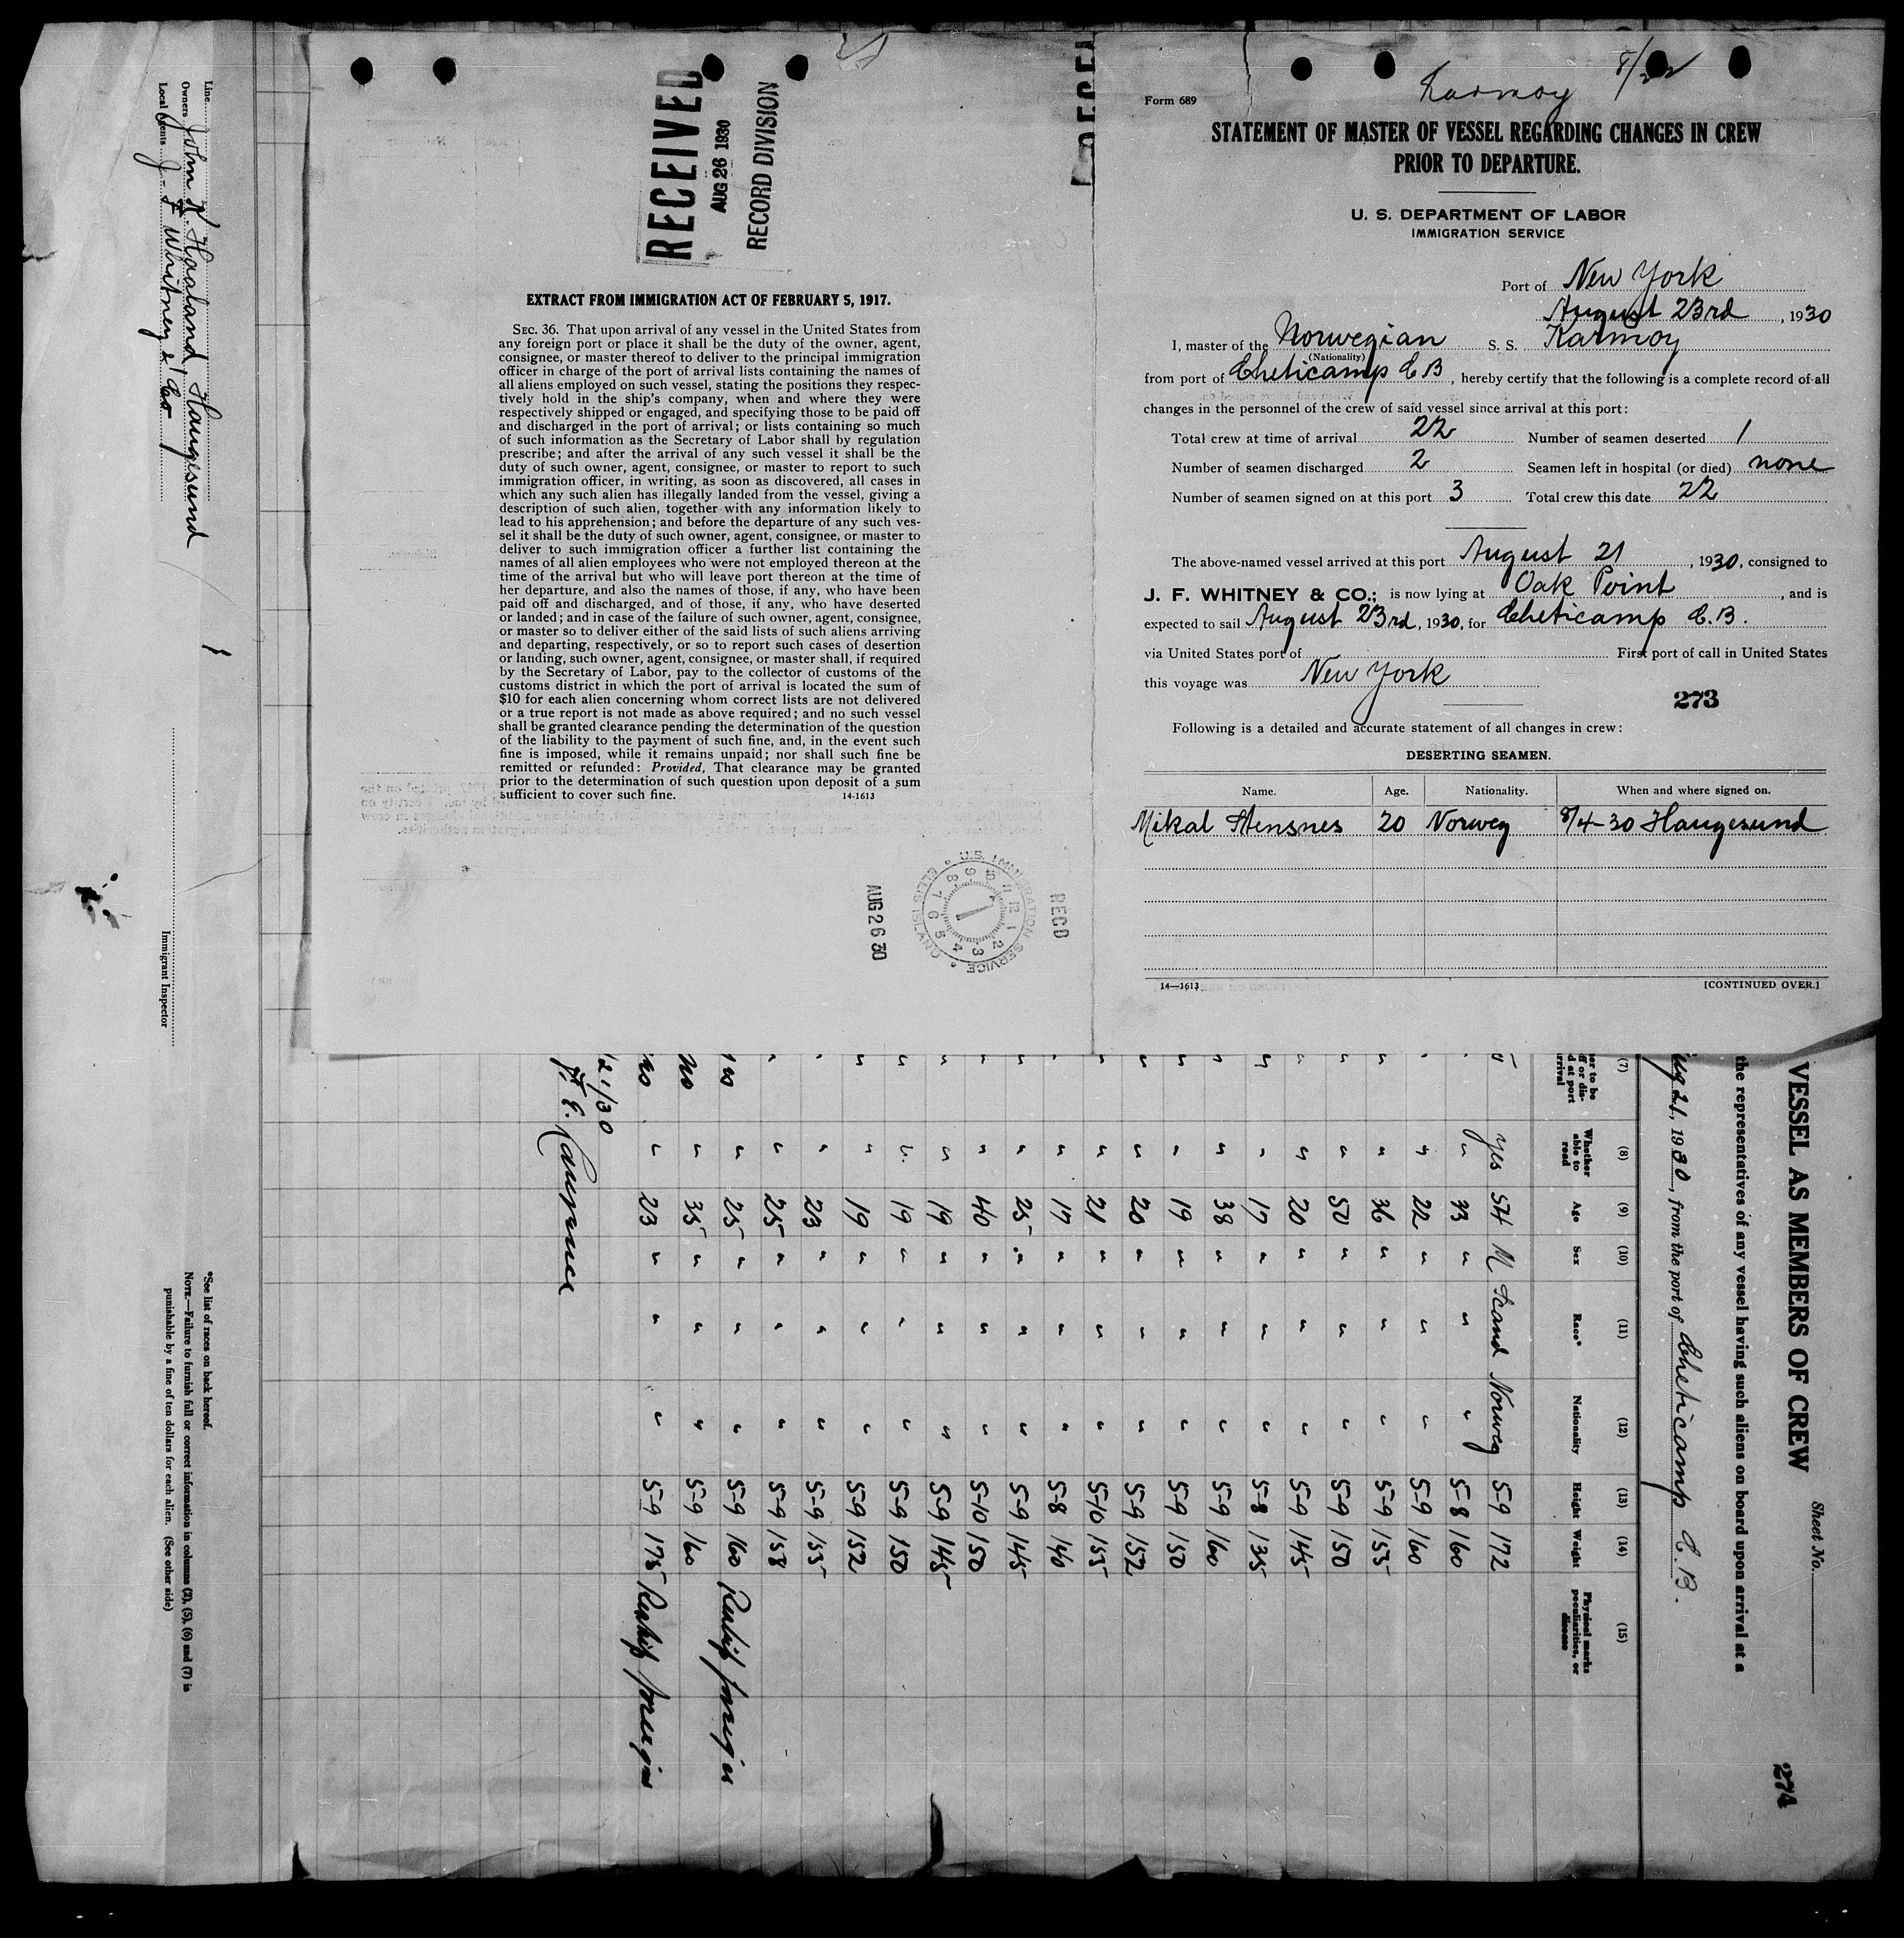 Line
Owners John K. Haaland, Haugesund
Local Agents J. F Whitney & Co
Immigrant Inspector
*See list of races on back hereof.
NOTE.—Failure to furnish full or correct information in columns (2), (5), (6) and (7) is
punishable by a fine of ten dollars for each alien. (See other side)
RECEIVED
AUG 26 1930
RECORD DIVISION
EXTRACT FROM IMMIGRATION ACT OF FEBRUARY 5, 1917.
SEC. 36. That upon arrival of any vessel in the United States from
any foreign port or place it shall be the duty of the owner, agent,
consignee, or master thereof to deliver to the principal immigration
officer in charge of the port of arrival lists containing the names of
all aliens employed on such vessel, stating the positions they respec-
tively hold in the ship's company, when and where they were
respectively shipped or engaged, and specifying those to be paid off
and discharged in the port of arrival; or lists containing so much
of such information as the Secretary of Labor shall by regulation
prescribe; and after the arrival of any such vessel it shall be the
duty of such owner, agent, consignee, or master to report to such
immigration officer, in writing, as soon as discovered, all cases in
which any such alien has illegally landed from the vessel, giving a
description of such alien, together with any information likely to
lead to his apprehension; and before the departure of any such ves-
sel it shall be the duty of such owner, agent, consignee, or master to
deliver to such immigration officer a further list containing the
names of all alien employees who were not employed thereon at the
time of the arrival but who will leave port thereon at the time of
her departure, and also the names of those, if any, who have been
paid off and discharged, and of those, if any, who have deserted
or landed; and in case of the failure of such owner, agent, consignee,
or master so to deliver either of the said lists of such aliens arriving
and departing, respectively, or so to report such cases of desertion
or landing, such owner, agent, consignee, or master shall, if required
by the Secretary of Labor, pay to the collector of customs of the
customs district in which the port of arrival is located the sum of
$10 for each alien concerning whom correct lists are not delivered
or a true report is not made as above required; and no such vessel
shall be granted clearance pending the determination of the question
of the liability to the payment of such fine, and, in the event such
fine is imposed, while it remains unpaid; nor shall such fine be
remitted or refunded: Provided, That clearance may be granted
prior to the determination of such question upon deposit of a sum
sufficient to cover such fine. 14-1613
AUG 26 30
U.S. IMMIGRATION SERVICE ELLIS ISLAND
RECD
Karmoy 8/22
Form 689
STATEMENT OF MASTER OF VESSEL REGARDING CHANGES IN CREW
PRIOR TO DEPARTURE.
U. S. DEPARTMENT OF LABOR
IMMIGRATION SERVICE
Port of New York
August 23rd, 1930
I, master of the Norwegian S. S. Karmoy
(Nationality)
from port of Cheticamp C B, hereby certify that the following is a complete record of all
changes in the personnel of the crew of said vessel since arrival at this port:
Total crew at time of arrival 22 Number of seamen deserted 1
Number of seamen discharged 2 Seamen left in hospital (or died) none
Number of seamen signed on at this port 3 Total crew this date 22
The above-named vessel arrived at this port August 21, 1930, consigned to
J. F. WHITNEY & CO.; is now lying at Oak Point, and is
expected to sail August 23rd, 1930, for Cheticamp C.B.
via United States port of First port of call in United States
this voyage was New York
273
Following is a detailed and accurate statement of all changes in crew:
DESERTING SEAMEN.
Name. Age. Nationality. When and where signed on.
Mikal Stensnes 20 Norweg 8/4-30 Haugesund
14—1613 [CONTINUED OVER.]
Sheet No.
274
VESSEL AS MEMBERS OF CREW
the representatives of any vessel having such aliens on board upon arrival at a
Aug 21, 1930, from the port of Cheticamp C. B.
(7) (8) (9) (10) (11) (12) (13) (14) (15)
Whether able to read Age Sex Race* Nationality Height Weight Physical marks peculiarities, or disease
yes 54 M Scand Norweg 5-9 172
" 33 " " " 5-8 160
" " 22 " " " 5-9 160
" " 36 " " " 5-9 155
" " 50 " " " 5-9 150
" " 20 " " " 5-9 145
" " 17 " " " 5-8 135
" " 38 " " " 5-9 160
" " 19 " " " 5-9 150
" " 20 " " " 5-9 152
" " 21 " " " 5-10 155
" " 17 " " " 5-8 140
" " 25 " " " 5-9 145
" " 40 " " " 5-10 150
" " 19 " " " 5-9 145
" " 19 " " " 5-9 150
" " 19 " " " 5-9 152
" " 23 " " " 5-9 155
" " 25 " " " 5-9 158
no " 25 " " " 5-9 160 Reship foreign
no " 35 " " " 5-9 160
no " 23 " " " 5-9 175 Reship foreign
21/30